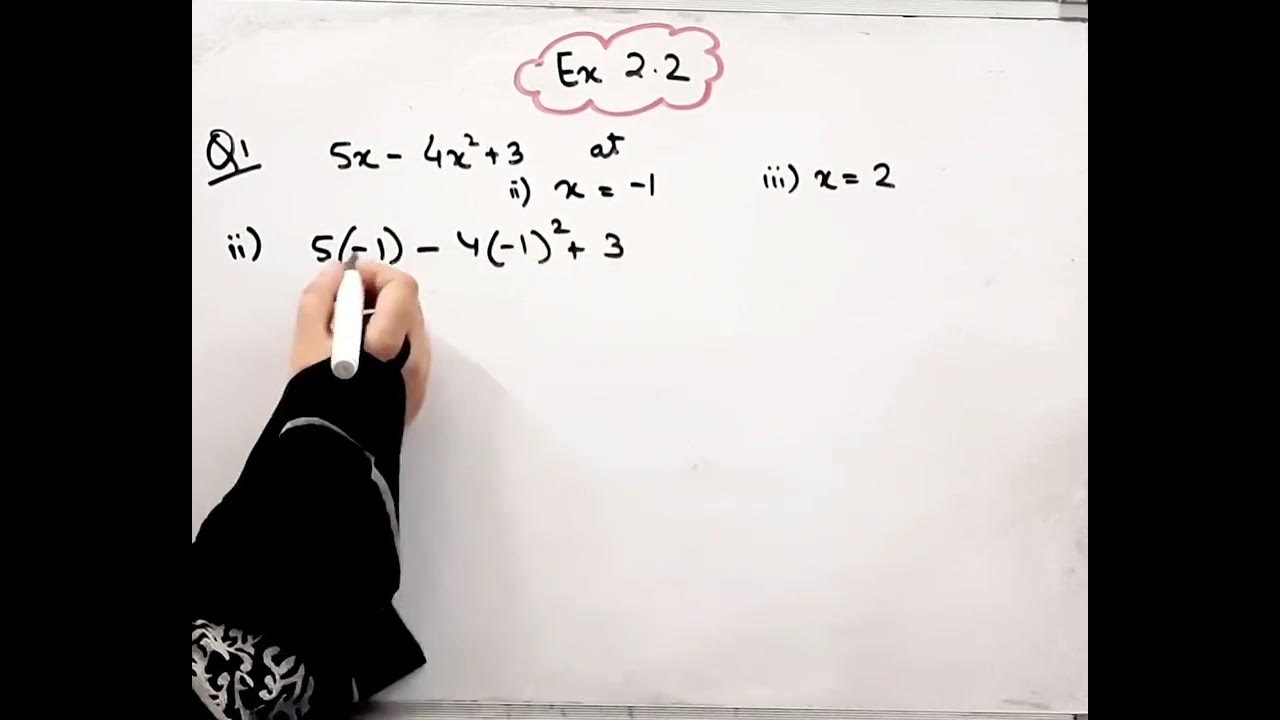 Ex 2.2
Q1 5x - 4x² + 3 at
ii) x = -1 iii) x = 2
ii) 5(-1) - 4(-1)² + 3